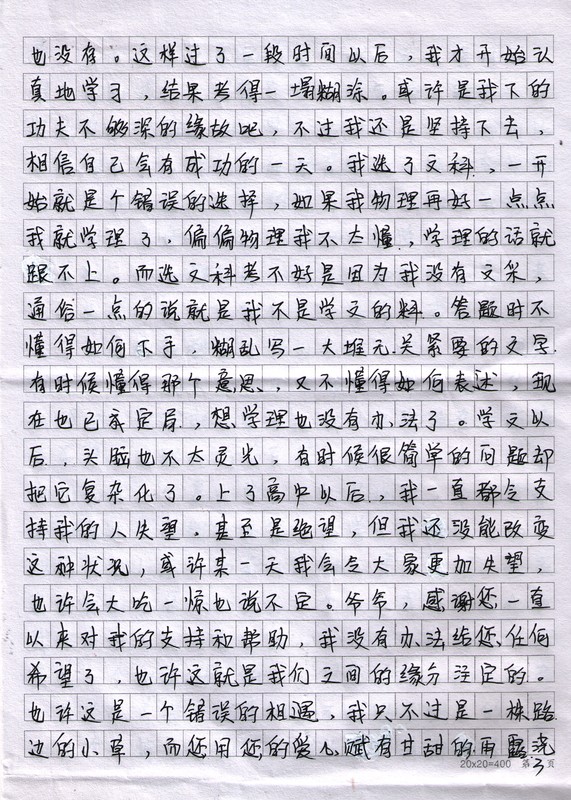 也没存。这样过了一段时间以后，我才开始认
真地学习，结果考得一塌糊涂。或许是我下的
功夫不够深的缘故吧，不过我还是坚持下去，
相信自己会有成功的一天。我选了文科，一开
始就是个错误的选择，如果我物理再好一点点
我就学理了，偏偏物理我不太懂，学理的话就
跟不上。而选文科考不好是因为我没有文采，
通俗一点的说就是我不是学文的料。答题时不
懂得如何下手，糊乱写一大堆无关紧要的文字
有时候懂得那个意思，又不懂得如何表述，现
在也已成定局，想学理也没有办法了。学文以
后，头脑也不太灵光，有时候很简单的问题却
把它复杂化了。上了高中以后，我一直都令支
持我的人失望，甚至是绝望，但我还没能改变
这种状况，或许某一天我会令大家更加失望，
也许会大吃一惊也说不定。爷爷，感谢您一直
以来对我的支持和帮助，我没有办法给您任何
希望了，也许这就是我们之间的缘分注定的。
也许这是一个错误的相遇，我只不过是一株路
边的小草，而您用您的爱心赋有甘甜的雨露浇
20×20=400 第3页